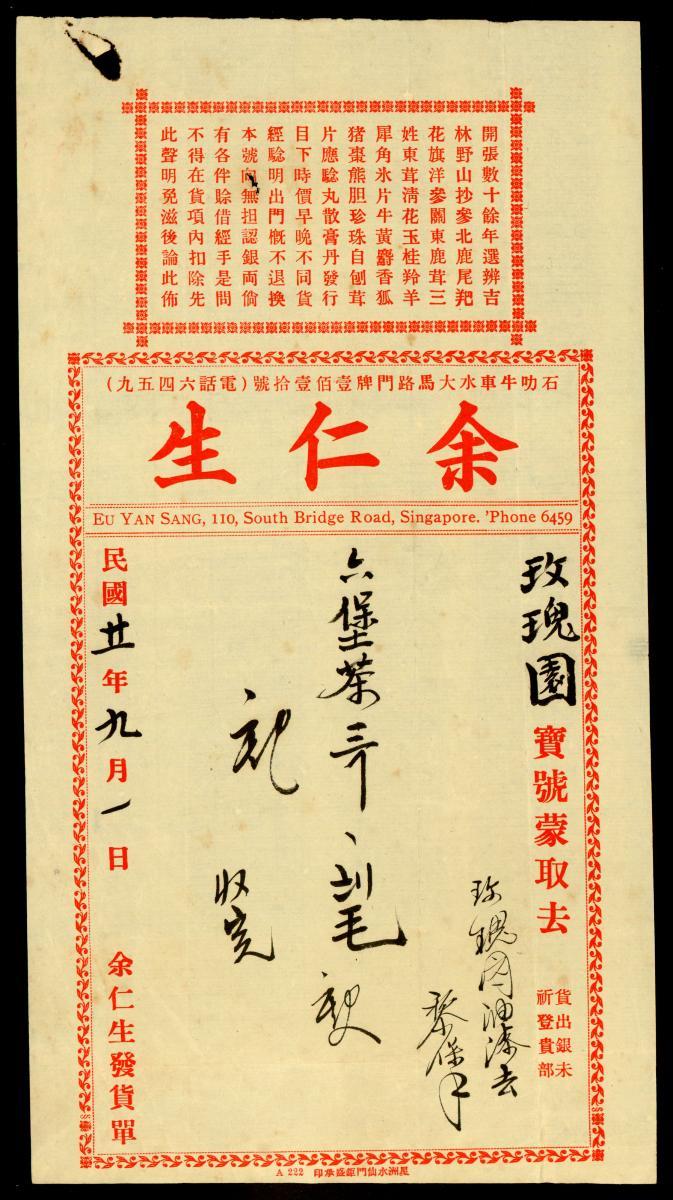 開張數十餘年選辨吉
林野山抄參北鹿尾羓
花旗洋參關東鹿茸三
姓東茸淸花玉桂羚羊
犀角氷片牛黃麝香狐
猪棗熊胆珍珠自刨茸
片應驗丸散膏丹發行
目下時價早晚不同貨
經騐明出門概不退換
本號向無担認銀両倘
有各伴賒借經手是問
不得在貨項內扣除先
此聲明免滋後論此佈
石叻牛車水大馬路門牌壹佰壹拾號（電話六四五九）
余仁生
EU YAN SANG, 110, South Bridge Road, Singapore. 'Phone 6459
玫瑰園寶號蒙取去
貨出銀未
祈登貴部
玫瑰園油漆去
黎保
六堡茶
收完
民國廿年九月一日
余仁生發貨單
星洲水仙門鉅盛承印 A 222